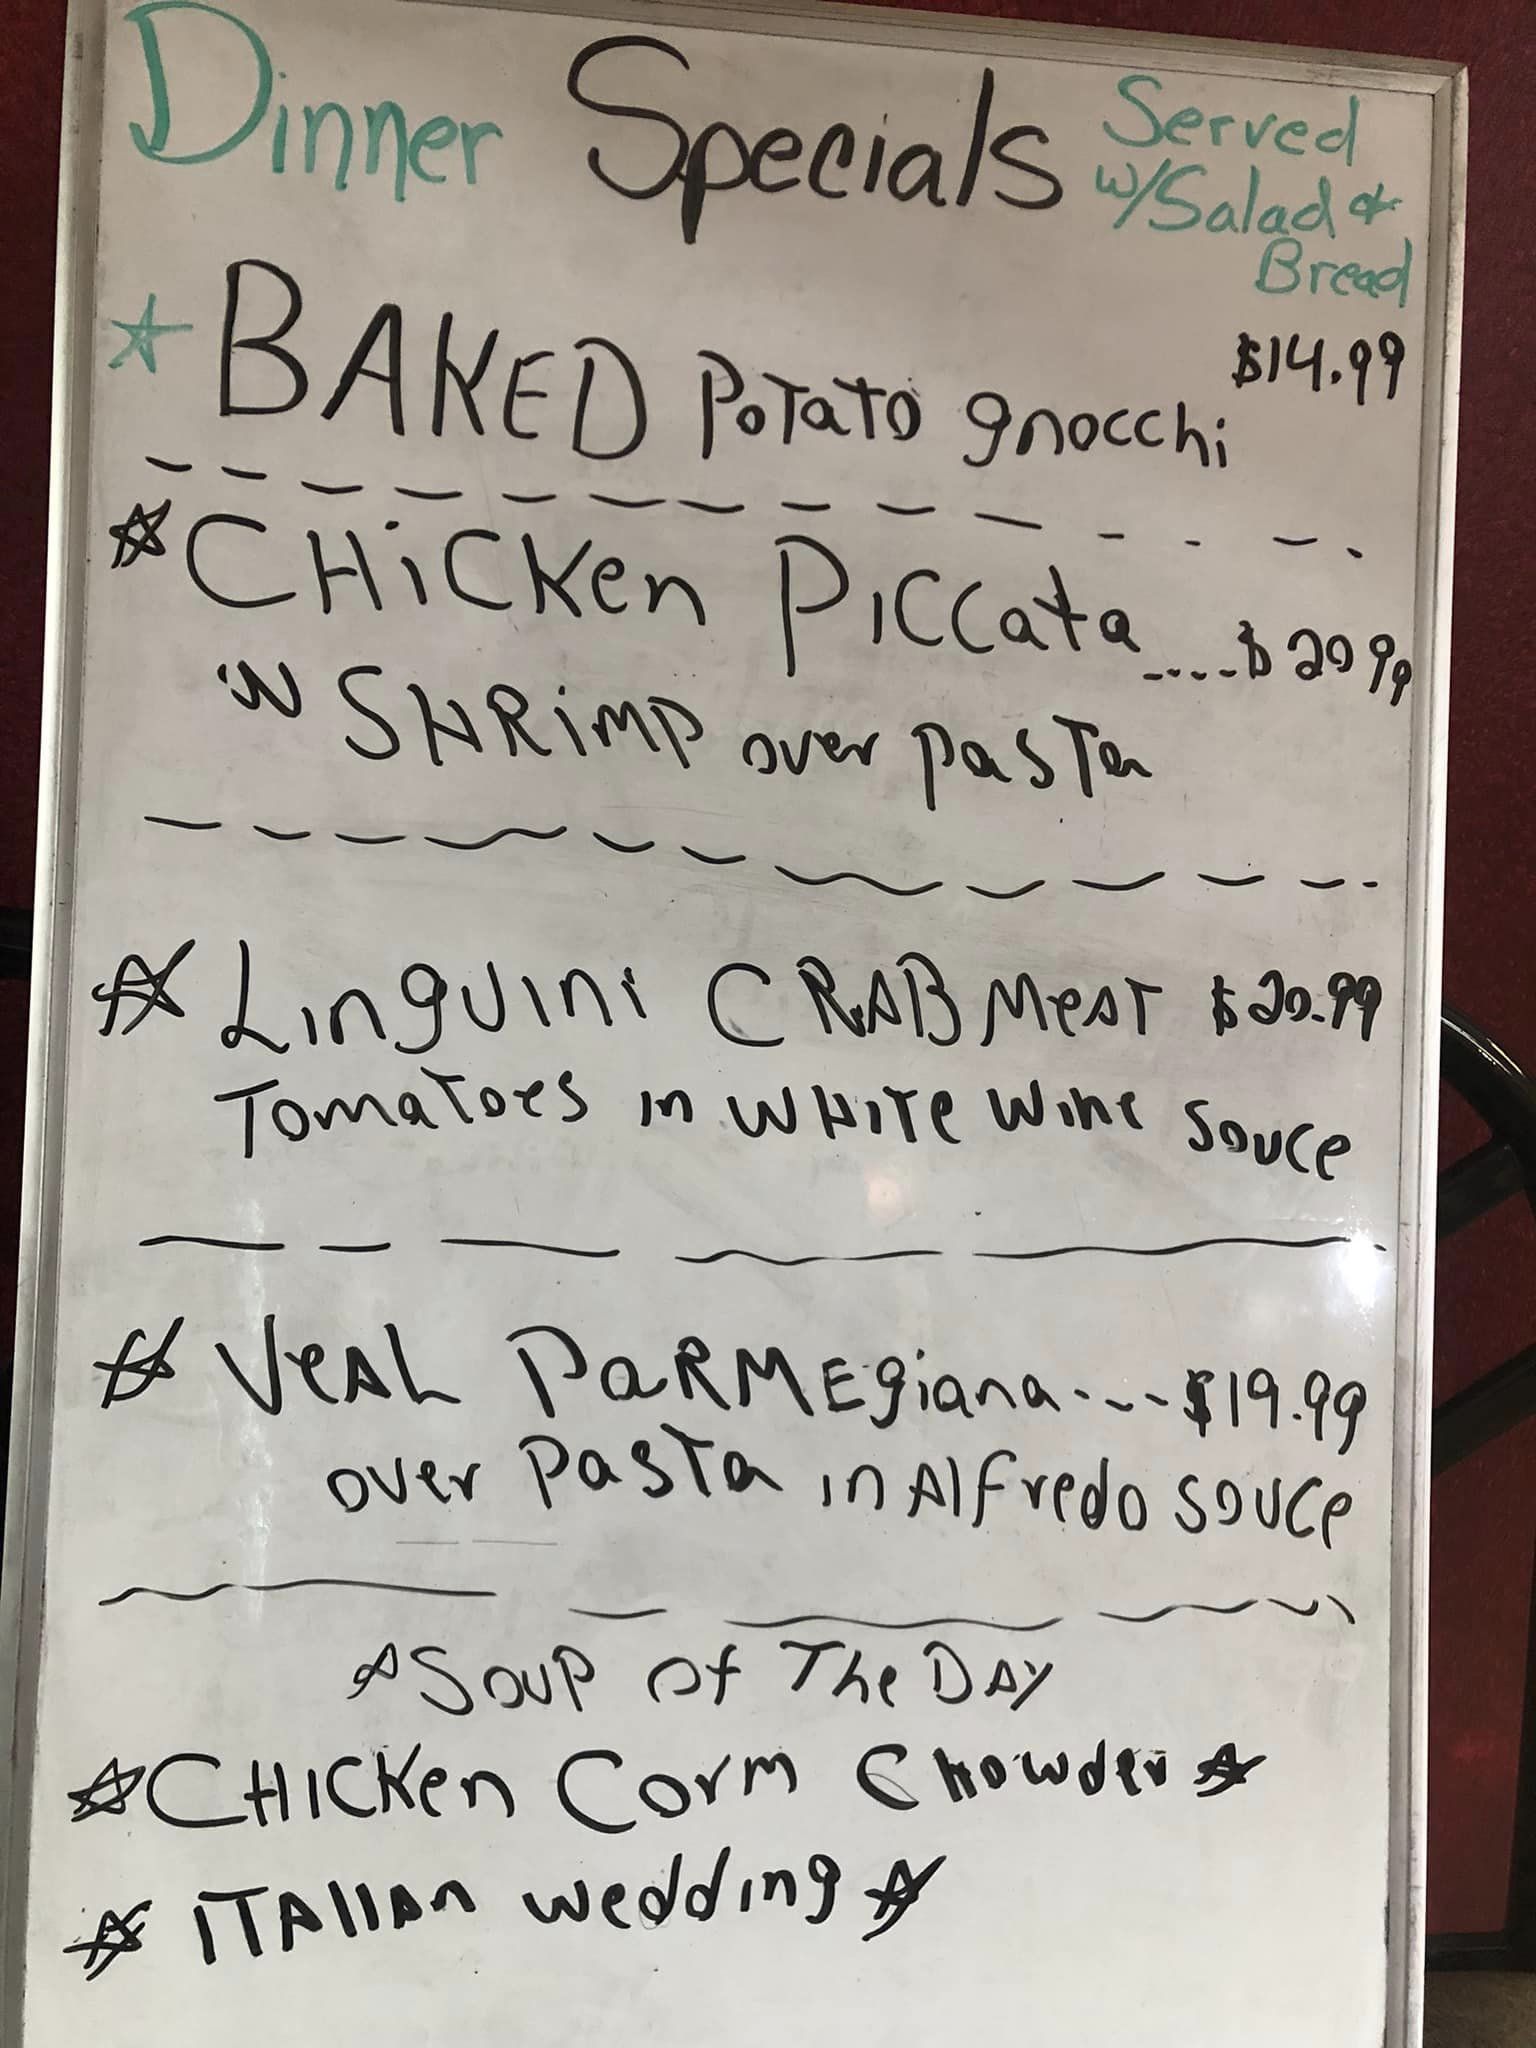 Dinner Specials Served
w/Salad &
Bread
BAKED Potato gnocchi $14.99
CHiCKen Piccata....$20 99
W SHRiMP over pasta
Linguini CRABMeAT $20.99
Tomatoes in WHITe Wine souce
VeAL PaRMEgiana----$19.99
over Pasta in Alfredo souce
Soup of The DAY
CHICKen Corm Chowder
ITAlIAn wedding